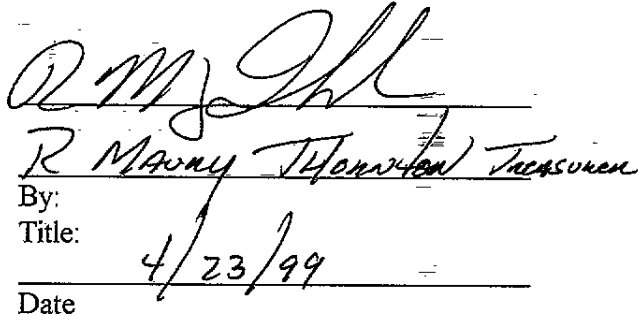 R Maury Thornton Treasurer
By:
Title:
4/23/99
Date